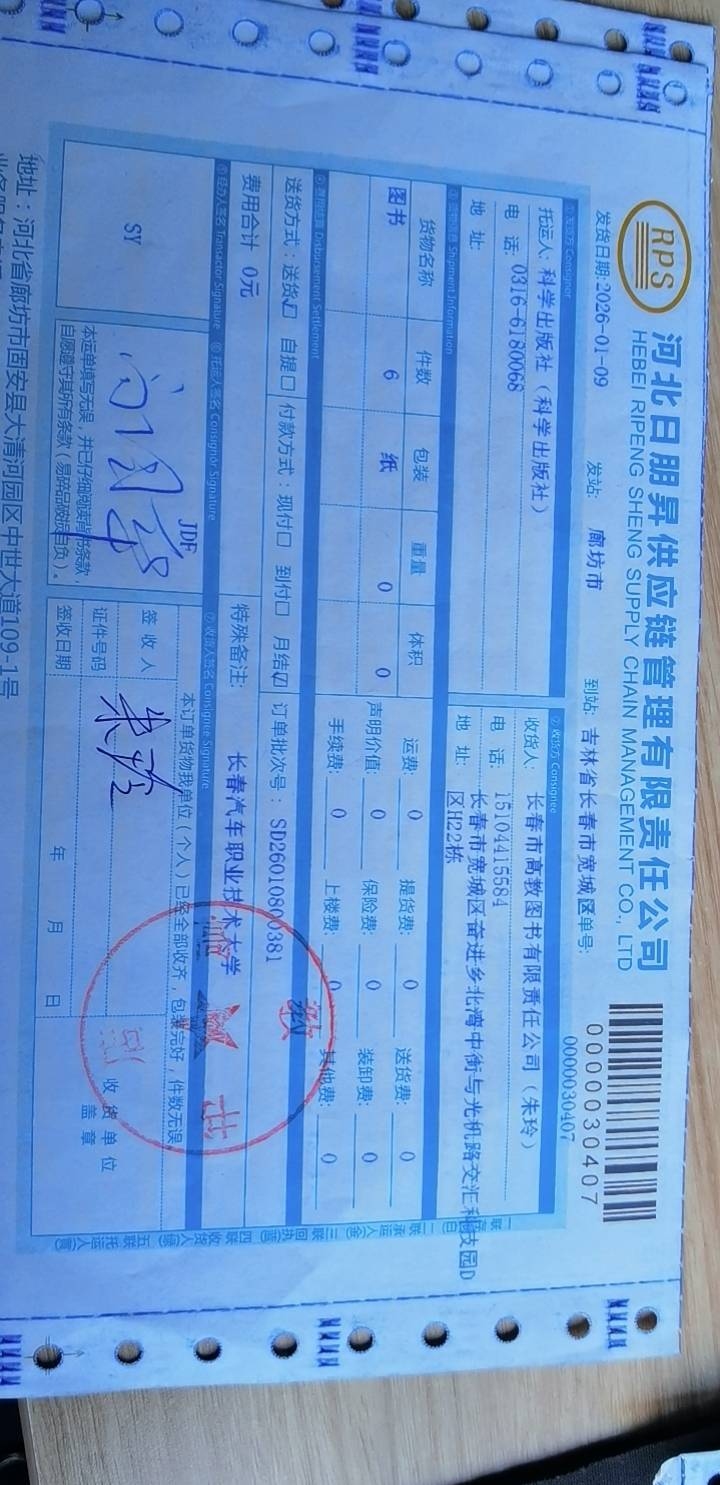 RPS
河北日朋昇供应链管理有限责任公司
HEBEI RIPENG SHENG SUPPLY CHAIN MANAGEMENT CO., LTD
0000030407
发货日期:2026-01-09 发站: 廊坊市 到站: 吉林省长春市宽城区 单号: 0000030407
①发货方 Consignor ②收货方 Consignee
托运人: 科学出版社（科学出版社） 收货人: 长春市高教图书有限责任公司（朱玲）
电 话: 0316-6180068 电 话: 15104415584
地 址: 地 址: 长春市宽城区奋进乡北湾中街与光机路交汇科技园D
区H22栋
③货物信息 Shipment Information
货物名称 件数 包装 重量 体积 运费: 0 提货费: 0 送货费: 0
图书 6 纸 0 0 声明价值: 0 保险费: 0 装卸费: 0
手续费: 0 上楼费: 0 其他费: 0
Disbursement Settlement
送货方式: 送货☑ 自提☐ 付款方式: 现付☐ 到付☐ 月结☑ 订单批次号: SD26010800381
费用合计 0元 特殊备注: 长春汽车职业技术大学
⑤经办人签名 Transactor Signature ⑥托运人签名 Consignor Signature ⑦收货人签名 Consignee Signature
SY
JDF
本运单填写无误，并已仔细阅读背书条款，
自愿遵守其所有条款（易碎品破损自负）。
本订单货物我单位（个人）已经全部收齐，包装完好，件数无误
签 收 人 朱玲
证件号码
签收日期 年 月 日
收货单位
盖 章
地址：河北省廊坊市固安县大清河园区中世大道109-1号